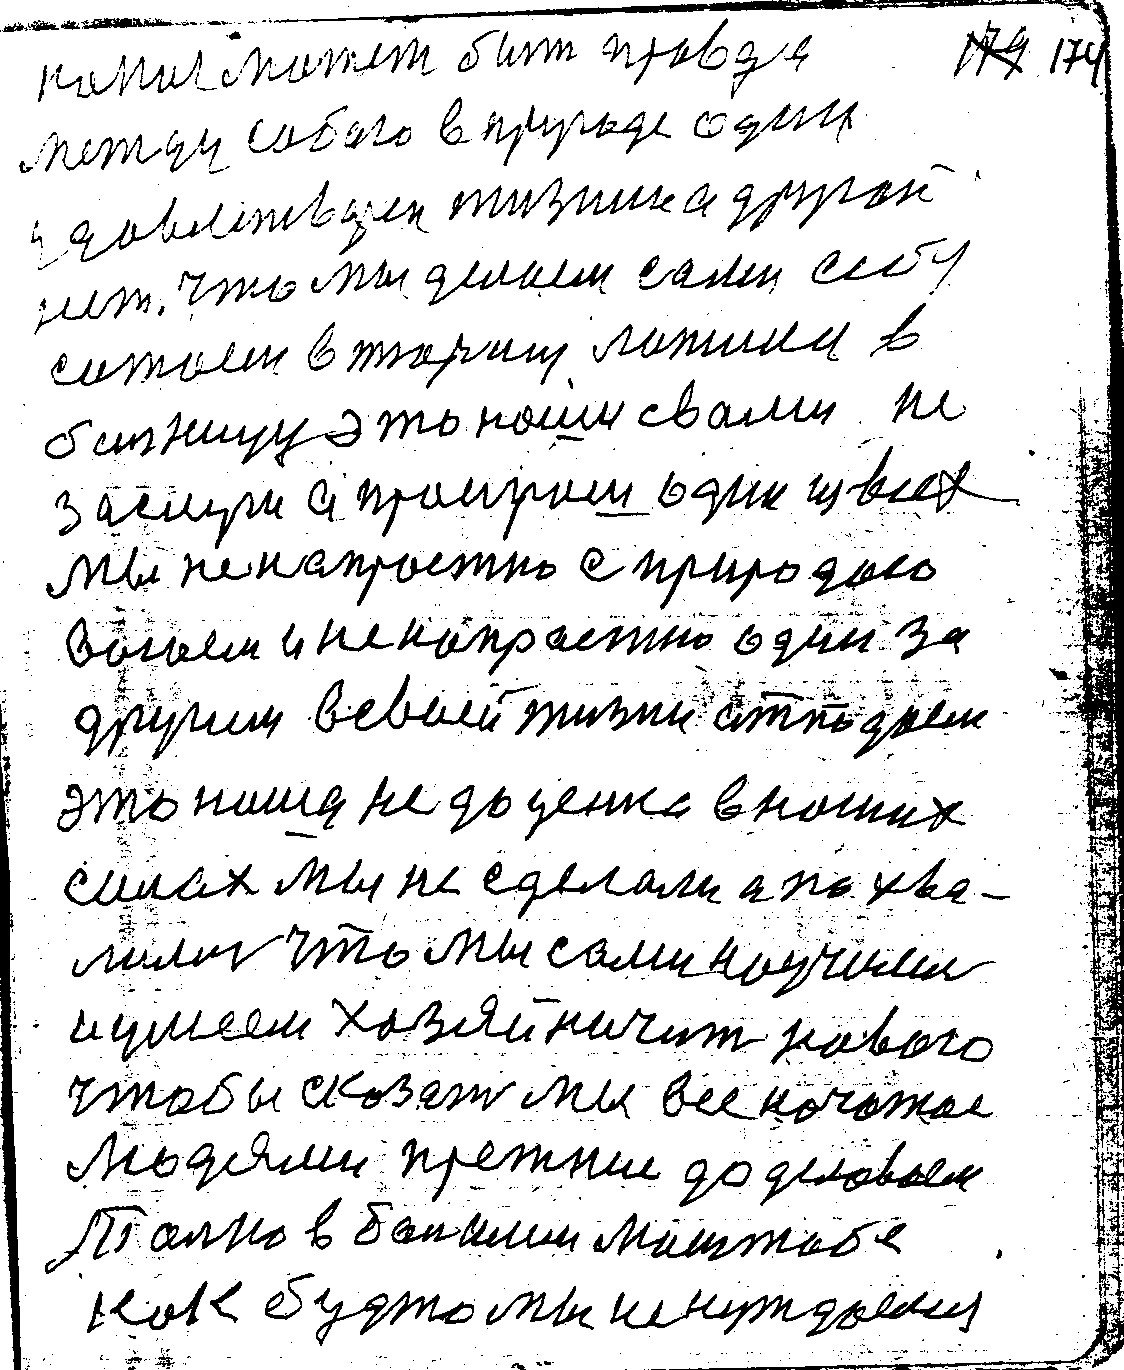 какая может быт правда 174
между собою в природе один
удовлетварен жизника а другой
нет. Что мы делаем сами себу
сажаем в тюрму ложим в
болницу это наши свами не
заслуги а проигрыш один из всех
мы не напрастно с природаю
ваюем и не напрастно один за
другим в своей жизни отпадаем
это наша не да ценка в наших
силах мы не сделали а па хва-
лилис что мы сами научилис
и умеем хозяйничит новаго
чтобы сказат мы все начатае
людями прежние да делаваем
Толко в болшим маштабе
как будто мы не нуждаемся